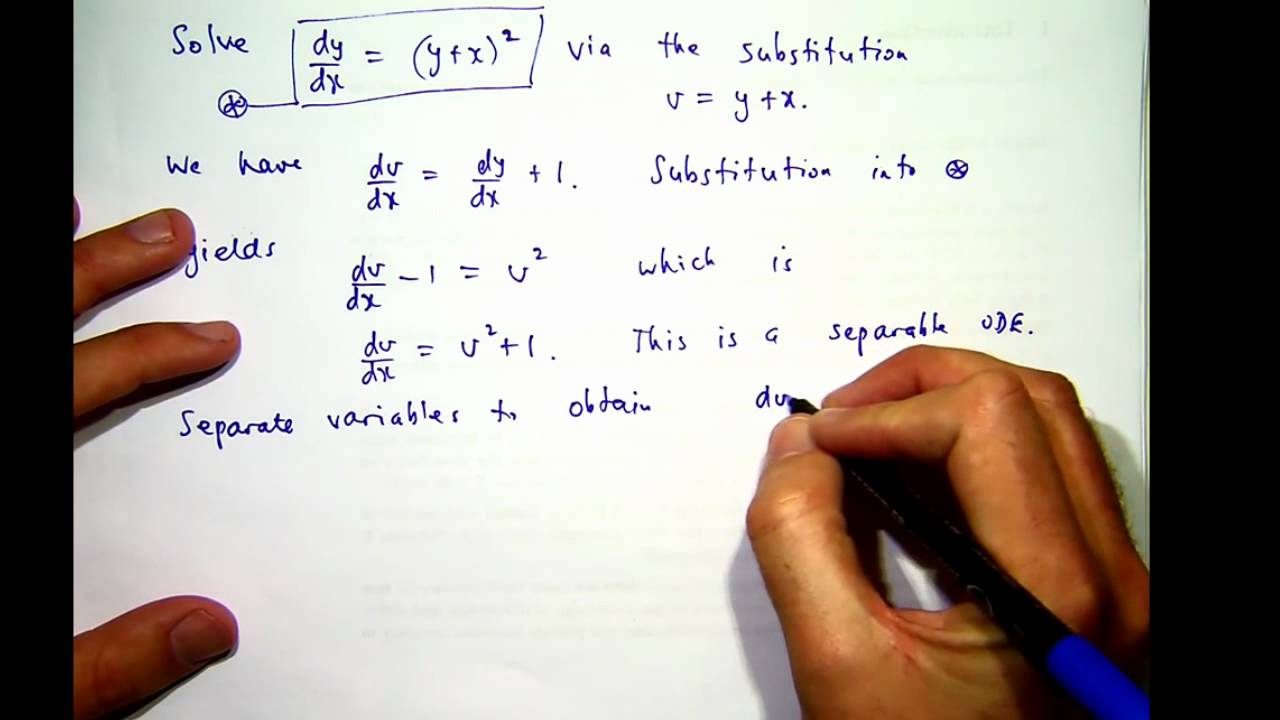 Solve dy/dx = (y+x)² via the substitution
⊛ v = y+x.
We have dv/dx = dy/dx + 1. Substitution into ⊛
yields dv/dx - 1 = v² which is
dv/dx = v²+1. This is a separable ODE.
Separate variables to obtain dv